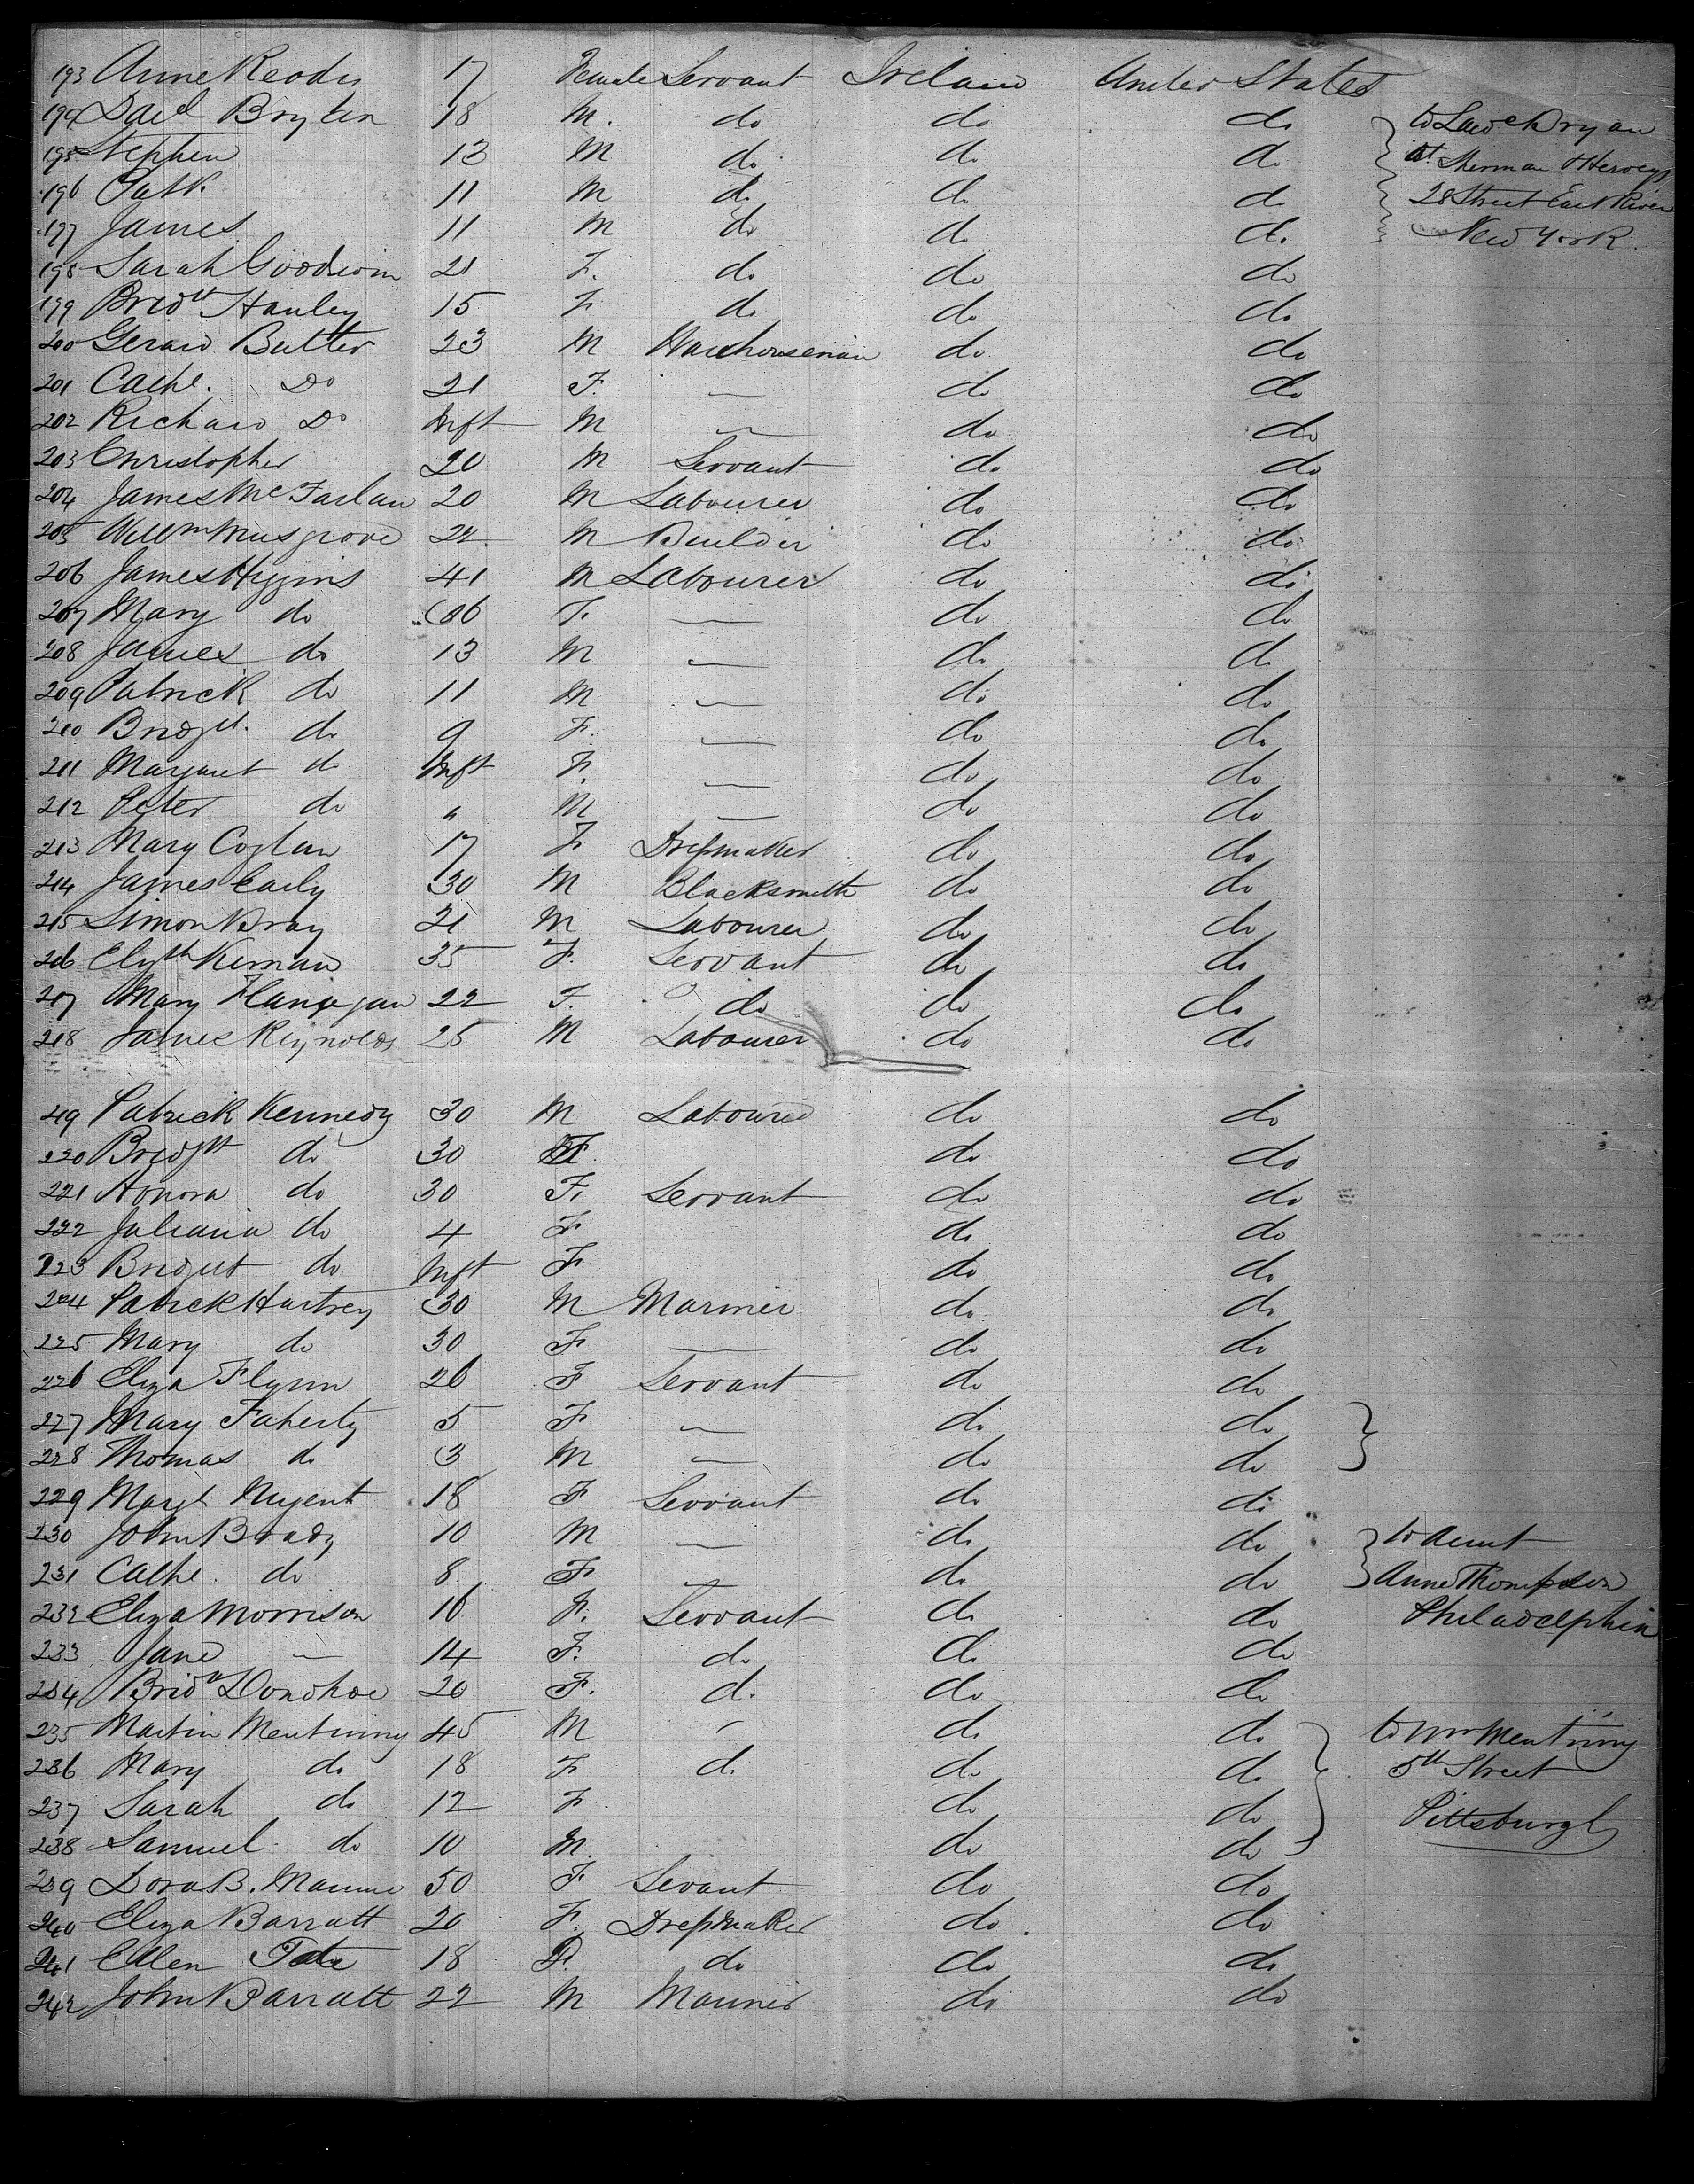 193 Anne Reader 17 Female Servant Ireland United States
194 Danl Brylen 18 M. do do do to Lawce Bryan
195 Stephen 13 M do do do at Sherman & Herveys
196 Patk 11 M do do do 28 Street East River
197 James 11 M do do do New York.
198 Sarah Goodwin 21 F. do do do
199 Bridt Hanley 15 F do do do
200 Gerard Butler 23 M Warehouseman do do
201 Cathe. Do 21 F. — do do
202 Richard Do Inft M — do do
203 Christopher 20 M Servant do do
204 James McFarlan 20 M Labourer do do
205 Willm Musgrove 22 M Builder do do
206 James Higgins 41 M Labourer do do
207 Mary do 36 F. — do do
208 James do 13 M — do do
209 Patrick do 11 M — do do
210 Bridgt. do 9 F. — do do
211 Margaret do Inft F. — do do
212 Peter do " M — do do
213 Mary Coglan 17 F Dressmaker do do
214 James Early 30 M Blacksmith do do
215 Simon Bray 21 M Labourer do do
216 Elizth Kernan 35 F. Servant do do
217 Mary Flanagan 22 F. do do do
218 James Reynolds 25 M Labourer do do
219 Patrick Kennedy 30 M Labourer do do
220 Bridgtt do 30 F. do do
221 Honora do 30 F. Servant do do
222 Juliana do 4 F do do
223 Bridget do Inft F do do
224 Patrick Hartrey 30 M Mariner do do
225 Mary do 30 F — do do
226 Eliza Flynn 26 F Servant do do
227 Mary Faherty 5 F — do do
228 Thomas do 3 M — do do
229 Margt Nugent 18 F Servant do do
230 John Brady 10 M — do do to Aunt
231 Cathe. do 8 F — do do Anne Thompson
232 Eliza Morrison 16 F. Servant do do Philadelphia
233 Jane — 14 F. do do do
234 Bridt Donohoe 20 F. do do do
235 Martin Mentinny 45 M – do do to Wm Mentinny
236 Mary do 18 F do do do 5th Street
237 Sarah do 12 F do do Pittsburgh
238 Samuel do 10 M. do do
239 Dora B. Maume 50 F Sevant do do
240 Eliza Barratt 20 F. Dressmaker do do
241 Ellen Tate 18 F. do do do
242 John Barratt 22 M Mariner do do